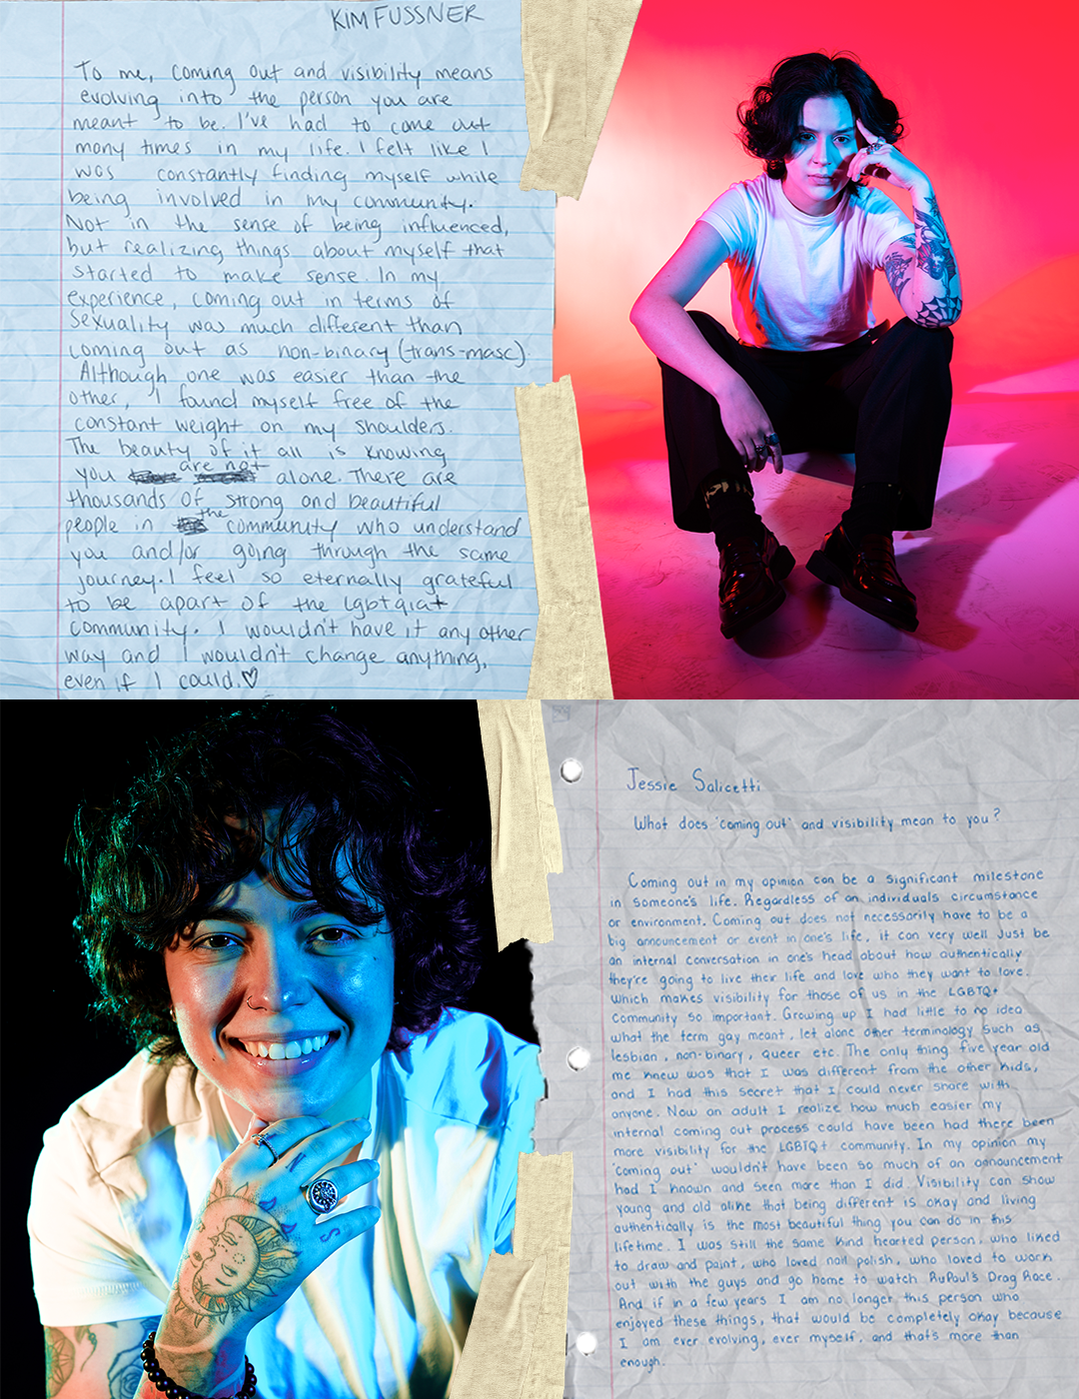 KIM FUSSNER
To me, coming out and visibility means
evolving into the person you are
meant to be. I've had to come out
many times in my life. I felt like I
was constantly finding myself while
being involved in my community.
Not in the sense of being influenced,
but realizing things about myself that
started to make sense. In my
experience, coming out in terms of
sexuality was much different than
coming out as non-binary (trans-masc).
Although one was easier than the
other, I found myself free of the
constant weight on my shoulders.
The beauty of it all is knowing
you are not alone. There are
thousands of strong and beautiful
people in the community who understand
you and/or going through the same
journey. I feel so eternally grateful
to be apart of the lgbtqia+
community. I wouldn't have it any other
way and I wouldn't change anything,
even if I could.♡
Jessie Salicetti
What does 'coming out' and visibility mean to you?
Coming out in my opinion can be a significant milestone
in someone's life. Regardless of an individuals circumstance
or environment. Coming out does not necessarily have to be a
big announcement or event in one's life, it can very well just be
an internal conversation in one's head about how authentically
they're going to live their life and love who they want to love.
Which makes visibility for those of us in the LGBTQ+
community so important. Growing up I had little to no idea
what the term gay meant, let alone other terminology such as
lesbian, non-binary, queer etc. The only thing five year old
me knew was that I was different from the other kids,
and I had this secret that I could never share with
anyone. Now an adult I realize how much easier my
internal coming out process could have been had there been
more visibility for the LGBTQ+ community. In my opinion my
'coming out' wouldn't have been so much of an announcement
had I known and seen more than I did. Visibility can show
young and old alike that being different is okay and living
authentically is the most beautiful thing you can do in this
lifetime. I was still the same kind hearted person, who liked
to draw and paint, who loved nail polish, who loved to work
out with the guys and go home to watch RuPaul's Drag Race.
And if in a few years I am no longer this person who
enjoyed these things, that would be completely okay because
I am ever evolving, ever myself, and that's more than
enough.